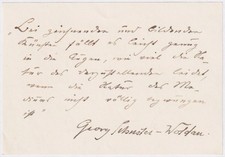 „Bei zeichnenden und bildenden
Künsten fällt es leicht genug
in die Augen, wie viel die Na-
tur des darzustellenden leidet,
wenn die Natur des Me-
diums nicht völlig bezwungen
ist"
Georg